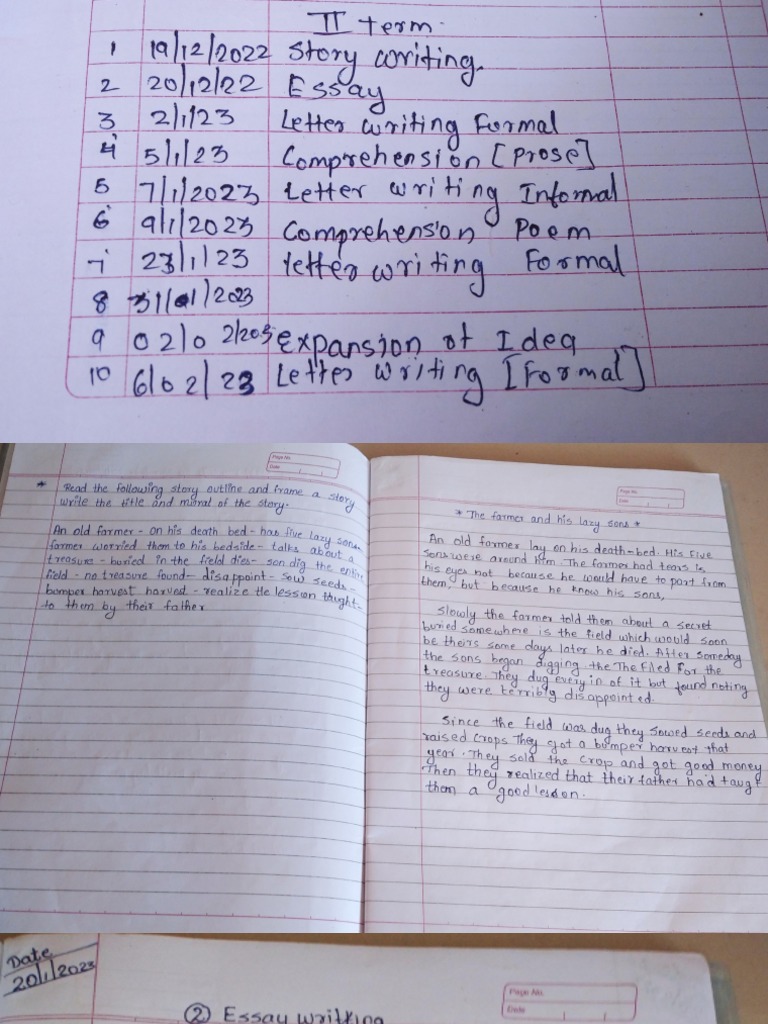 II term.
1 19/12/2022 Story writing.
2 20/12/22 Essay
3 2/1/23 Letter writing Formal
4 5/1/23 Comprehension [Prose]
5 7/1/2023 Letter writing Informal
6 9/1/2023 Comprehension Poem
7 23/1/23 letter writing Formal
8 31/01/2023
9 02/02/2023 Expansion of Idea
10 6/02/23 Letter writing [Formal]
Page No.
Date
* Read the following story outline and frame a story
write the title and moral of the story.
An old farmer - on his death bed - has five lazy sons
farmer worried them to his bedside - talks about a
treasure - buried in the field dies - son dig the entire
field - no treasure found - disappoint - sow seeds -
bumper harvest harved - realize the lession thught
to them by their father
Page No.
Date
* The farmer and his lazy sons *
An old farmer lay on his death-bed. His five
sons were around him. The farmer had tears is
his eyes not because he would have to part from
them, but because he know his sons,
Slowly the farmer told them about a secret
buried somewhere is the field which would soon
be theirs some days later he died. After someday
the sons began digging the The filed For the
treasure. They dug every in of it but found noting
they were terribly disappointed.
Since the field was dug they sowed seeds and
raised crops They got a bumper harvest that
year. They sold the crop and got good money
Then they realized that their father had taught
them a good lesson.
Date
20/1/2023
Page No.
Date
② Essay writting